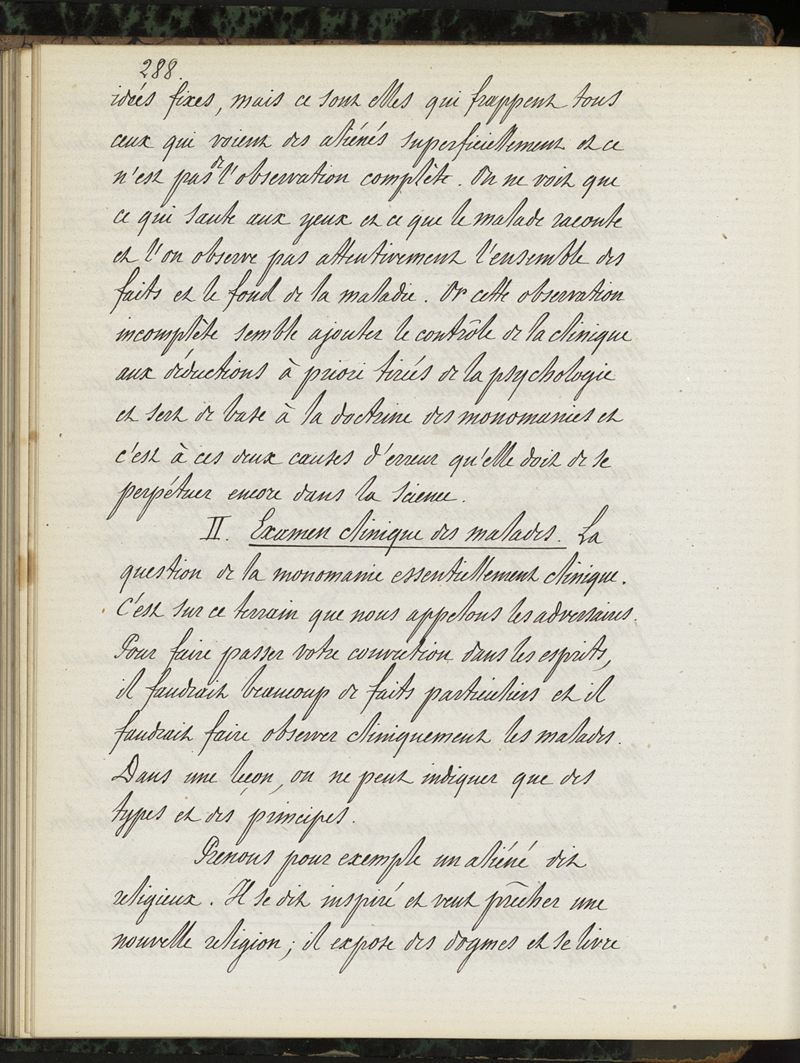 288.
idées fixes, mais ce sont elles qui frappent tous
ceux qui voient des aliénés superficiellement et ce
n'est pas de l'observation complète. On ne voit que
ce qui saute aux yeux et ce que le malade raconte
et l'on observe pas attentivement l'ensemble des
faits et le fond de la maladie. Or cette observation
incomplète semble ajouter le contrôle de la clinique
aux déductions à priori tirées de la psychologie
et sert de base à la doctrine des monomanies et
c'est à ces deux causes d'erreur qu'elle doit de se
perpétuer encore dans la science.
II. Examen clinique des malades. La
question de la monomanie essentiellement clinique.
C'est sur ce terrain que nous appelons les adversaires.
Pour faire passer votre conviction dans les esprits,
il faudrait beaucoup de faits particuliers et il
faudrait faire observer cliniquement les malades.
Dans une leçon, on ne peut indiquer que des
types et des principes.
Prenons pour exemple un aliéné dit
religieux. Il se dit inspiré et veut prêcher une
nouvelle religion; il expose des dogmes et se livre